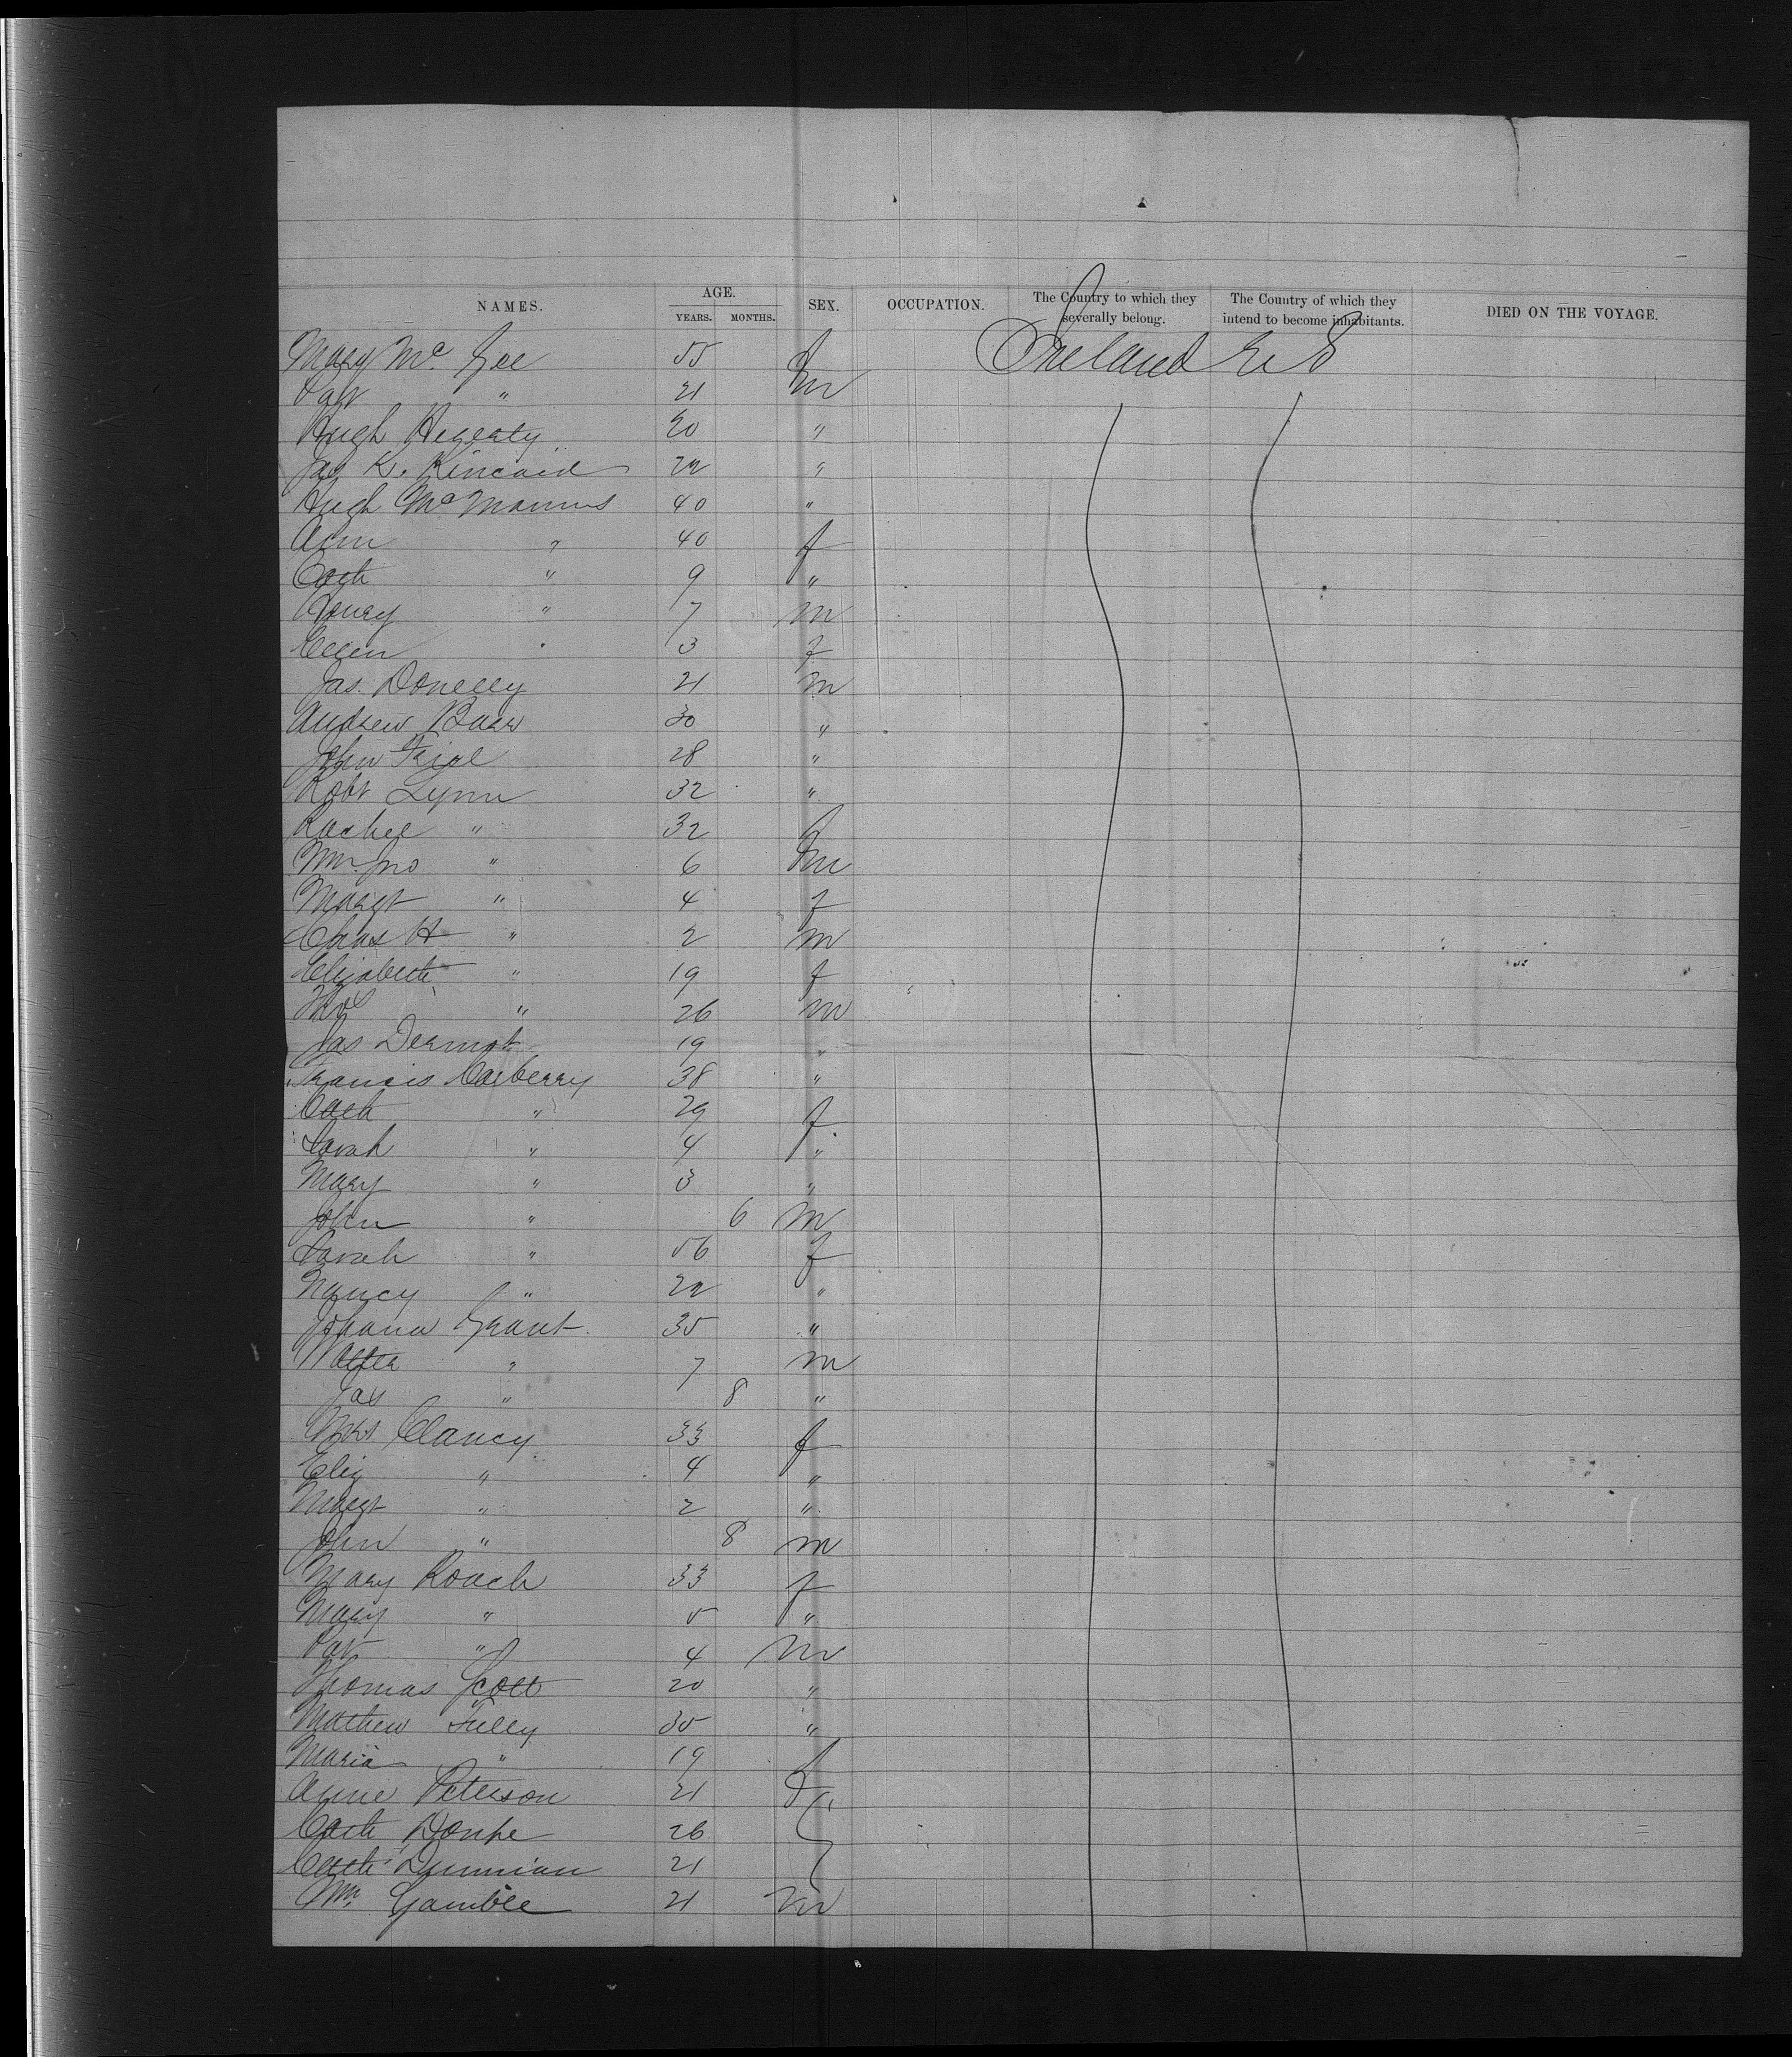 NAMES. AGE. YEARS. MONTHS. SEX. OCCUPATION. The Country to which they severally belong. The Country of which they intend to become inhabitants. DIED ON THE VOYAGE.
Mary Mc Gee 55 f Ireland U S
Patr " 21 m
Hugh Hegerty 20 "
Jas K. Kincaid 22 "
Hugh McManus 40 "
Ann " 40 f
Cath " 9 "
Henry " 7 m
Ellen " 3 f
Jas. Donelly 21 m
Andrew Barr 30 "
John Friel 28 "
Robt Lynn 32 "
Rachel " 32 f
Wm Jno " 6 m
Margt " 4 f
Chas H " 2 m
Elizabeth " 19 f
Thos " 26 m
Jas Dermot 19 "
Francis Carberry 38 "
Cath " 29 f
Sarah " 4 "
Mary " 3 "
John " 6 m
Sarah " 56 f
Nancy " 22 "
Johana Grant 35 "
Walter " 7 m
Jas " 8 "
Mrs Clancy 33 f
Eliz " 4 "
Margt " 2 "
John " 8 m
Mary Roach 33 f
Mary " 5 "
Pat " 4 m
Thomas Scott 20 "
Mathew Tully 35 "
Maria " 19 f
Anne Peterson 21 f
Cath 26
Cath 21
Wm. Gamble 21 m